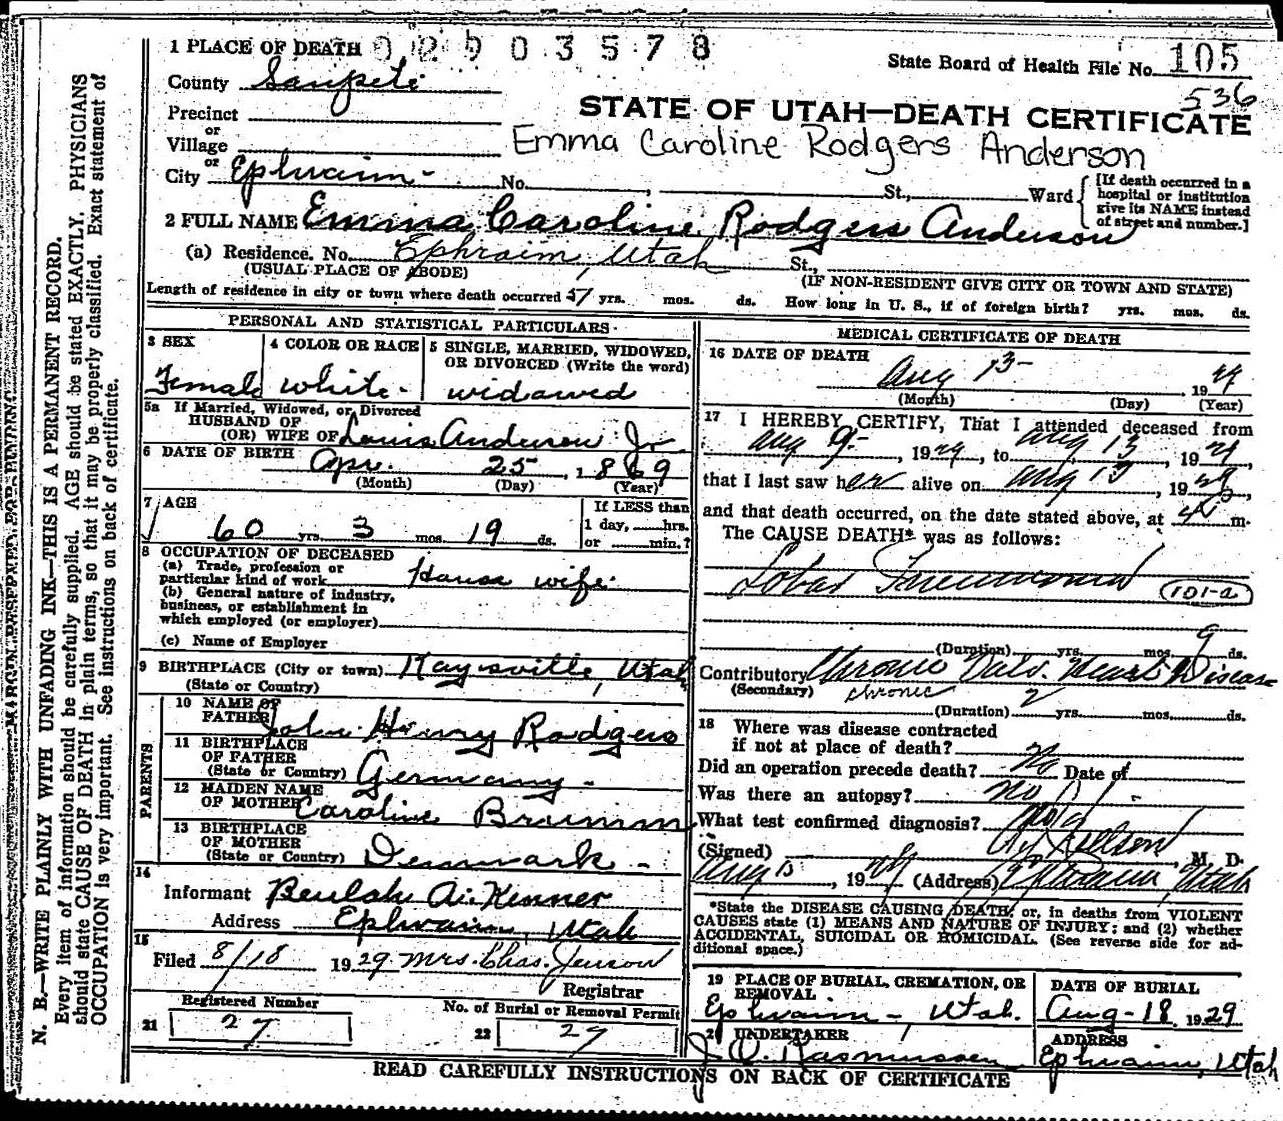 1 PLACE OF DEATH 02903578
State Board of Health File No. 105
County Sanpete
536
STATE OF UTAH—DEATH CERTIFICATE
Precinct
or
Village
Emma Caroline Rodgers Anderson
or
City Ephraim No. , St., Ward
[If death occurred in a hospital or institution give its NAME instead of street and number.]
2 FULL NAME Emma Caroline Rodgers Anderson
(a) Residence. No. Ephraim, Utah St.,
(USUAL PLACE OF ABODE) (IF NON-RESIDENT GIVE CITY OR TOWN AND STATE)
Length of residence in city or town where death occurred 57 yrs. mos. ds. How long in U. S., if of foreign birth? yrs. mos. ds.
PERSONAL AND STATISTICAL PARTICULARS
3 SEX 4 COLOR OR RACE 5 SINGLE, MARRIED, WIDOWED,
OR DIVORCED (Write the word)
Female white widowed
5a If Married, Widowed, or Divorced
HUSBAND OF
(OR) WIFE OF Louis Anderson Jr
6 DATE OF BIRTH Apr. 25, 1869
(Month) (Day) (Year)
7 AGE If LESS than
60 yrs. 3 mos. 19 ds. 1 day, hrs.
or min.?
8 OCCUPATION OF DECEASED
(a) Trade, profession or
particular kind of work House wife
(b) General nature of industry,
business, or establishment in
which employed (or employer)
(c) Name of Employer
9 BIRTHPLACE (City or town) Kaysville, Utah
(State or Country)
PARENTS
10 NAME OF
FATHER John Henry Rodgers
11 BIRTHPLACE
OF FATHER
(State or Country) Germany
12 MAIDEN NAME
OF MOTHER Caroline
13 BIRTHPLACE
OF MOTHER
(State or Country) Denmark
14
Informant Beulah A. Kenner
Address Ephraim, Utah
15
Filed 8/18 1929 Mrs. Chas. Jenson
Registrar
Registered Number No. of Burial or Removal Permit
21 27 22 27
MEDICAL CERTIFICATE OF DEATH
16 DATE OF DEATH
Aug 13 1929
(Month) (Day) (Year)
17 I HEREBY CERTIFY, That I attended deceased from
Aug 9, 1929, to Aug 13, 1929,
that I last saw her alive on Aug 13, 1929,
and that death occurred, on the date stated above, at m.
The CAUSE DEATH* was as follows:
Lobar Pneumonia 101-a
(Duration) yrs. mos. 9 ds.
Contributory Chronic Valv. Heart Disease
(Secondary) chronic
(Duration) 2 yrs. mos. ds.
18 Where was disease contracted
if not at place of death?
Did an operation precede death? No Date of
Was there an autopsy? no
What test confirmed diagnosis?
(Signed) , M. D.
Aug 13, 1929 (Address) Ephraim Utah
*State the DISEASE CAUSING DEATH, or, in deaths from VIOLENT
CAUSES state (1) MEANS AND NATURE OF INJURY; and (2) whether
ACCIDENTAL, SUICIDAL OR HOMICIDAL. (See reverse side for ad-
ditional space.)
19 PLACE OF BURIAL, CREMATION, OR
REMOVAL
Ephraim, Utah.
DATE OF BURIAL
Aug-18 1929
UNDERTAKER
Rasmussen
ADDRESS
Ephraim, Utah
READ CAREFULLY INSTRUCTIONS ON BACK OF CERTIFICATE
MARGIN RESERVED FOR BINDING
N. B.—WRITE PLAINLY WITH UNFADING INK—THIS IS A PERMANENT RECORD.
Every item of information should be carefully supplied. AGE should be stated EXACTLY. PHYSICIANS
should state CAUSE OF DEATH in plain terms, so that it may be properly classified. Exact statement of
OCCUPATION is very important. See instructions on back of certificate.